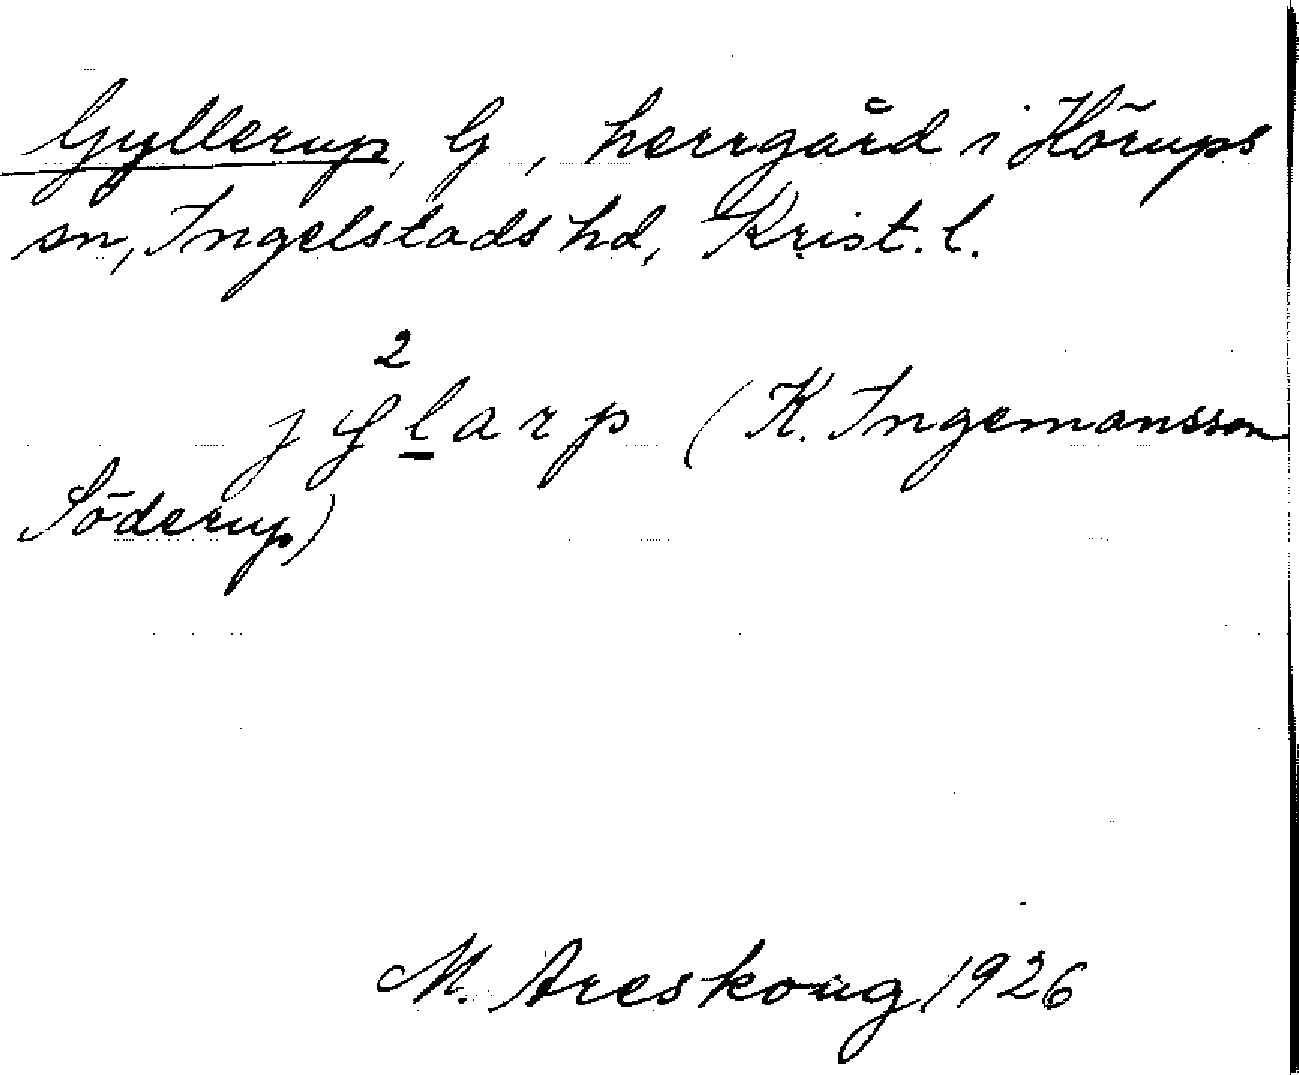 Gyllerup, G, herrgård i Hörups
sn, Ingelstads hd, Krist. l.
2
jylarp (K. Ingemansson
Söderup)
M. Areskoug 1926